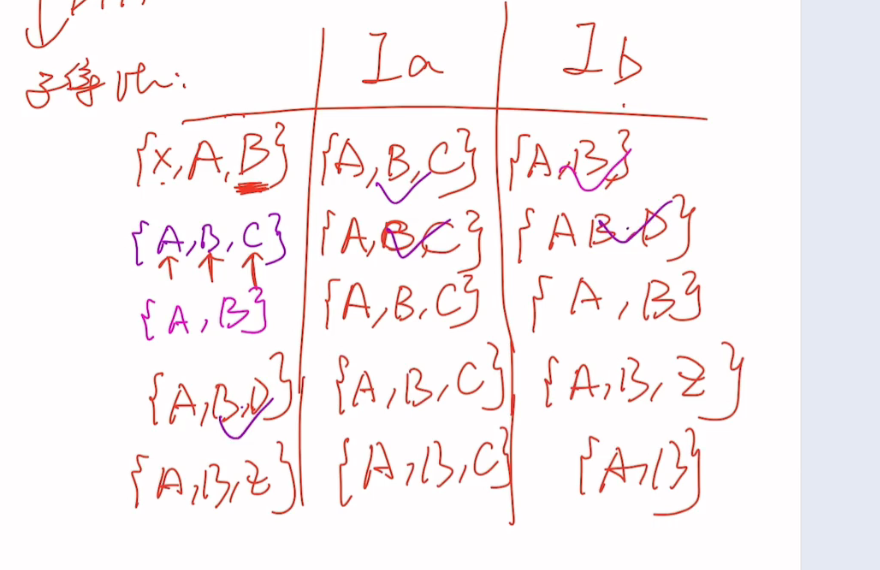 子集比:
Ia Ib
{x,A,B} {A,B,C} {A,B}
{A,B,C} {A,B,C} {A B. D}
{A,B} {A,B,C} {A,B}
{A,B,D} {A,B,C} {A,B,Z}
{A,B,Z} {A,B,C} {A,B}